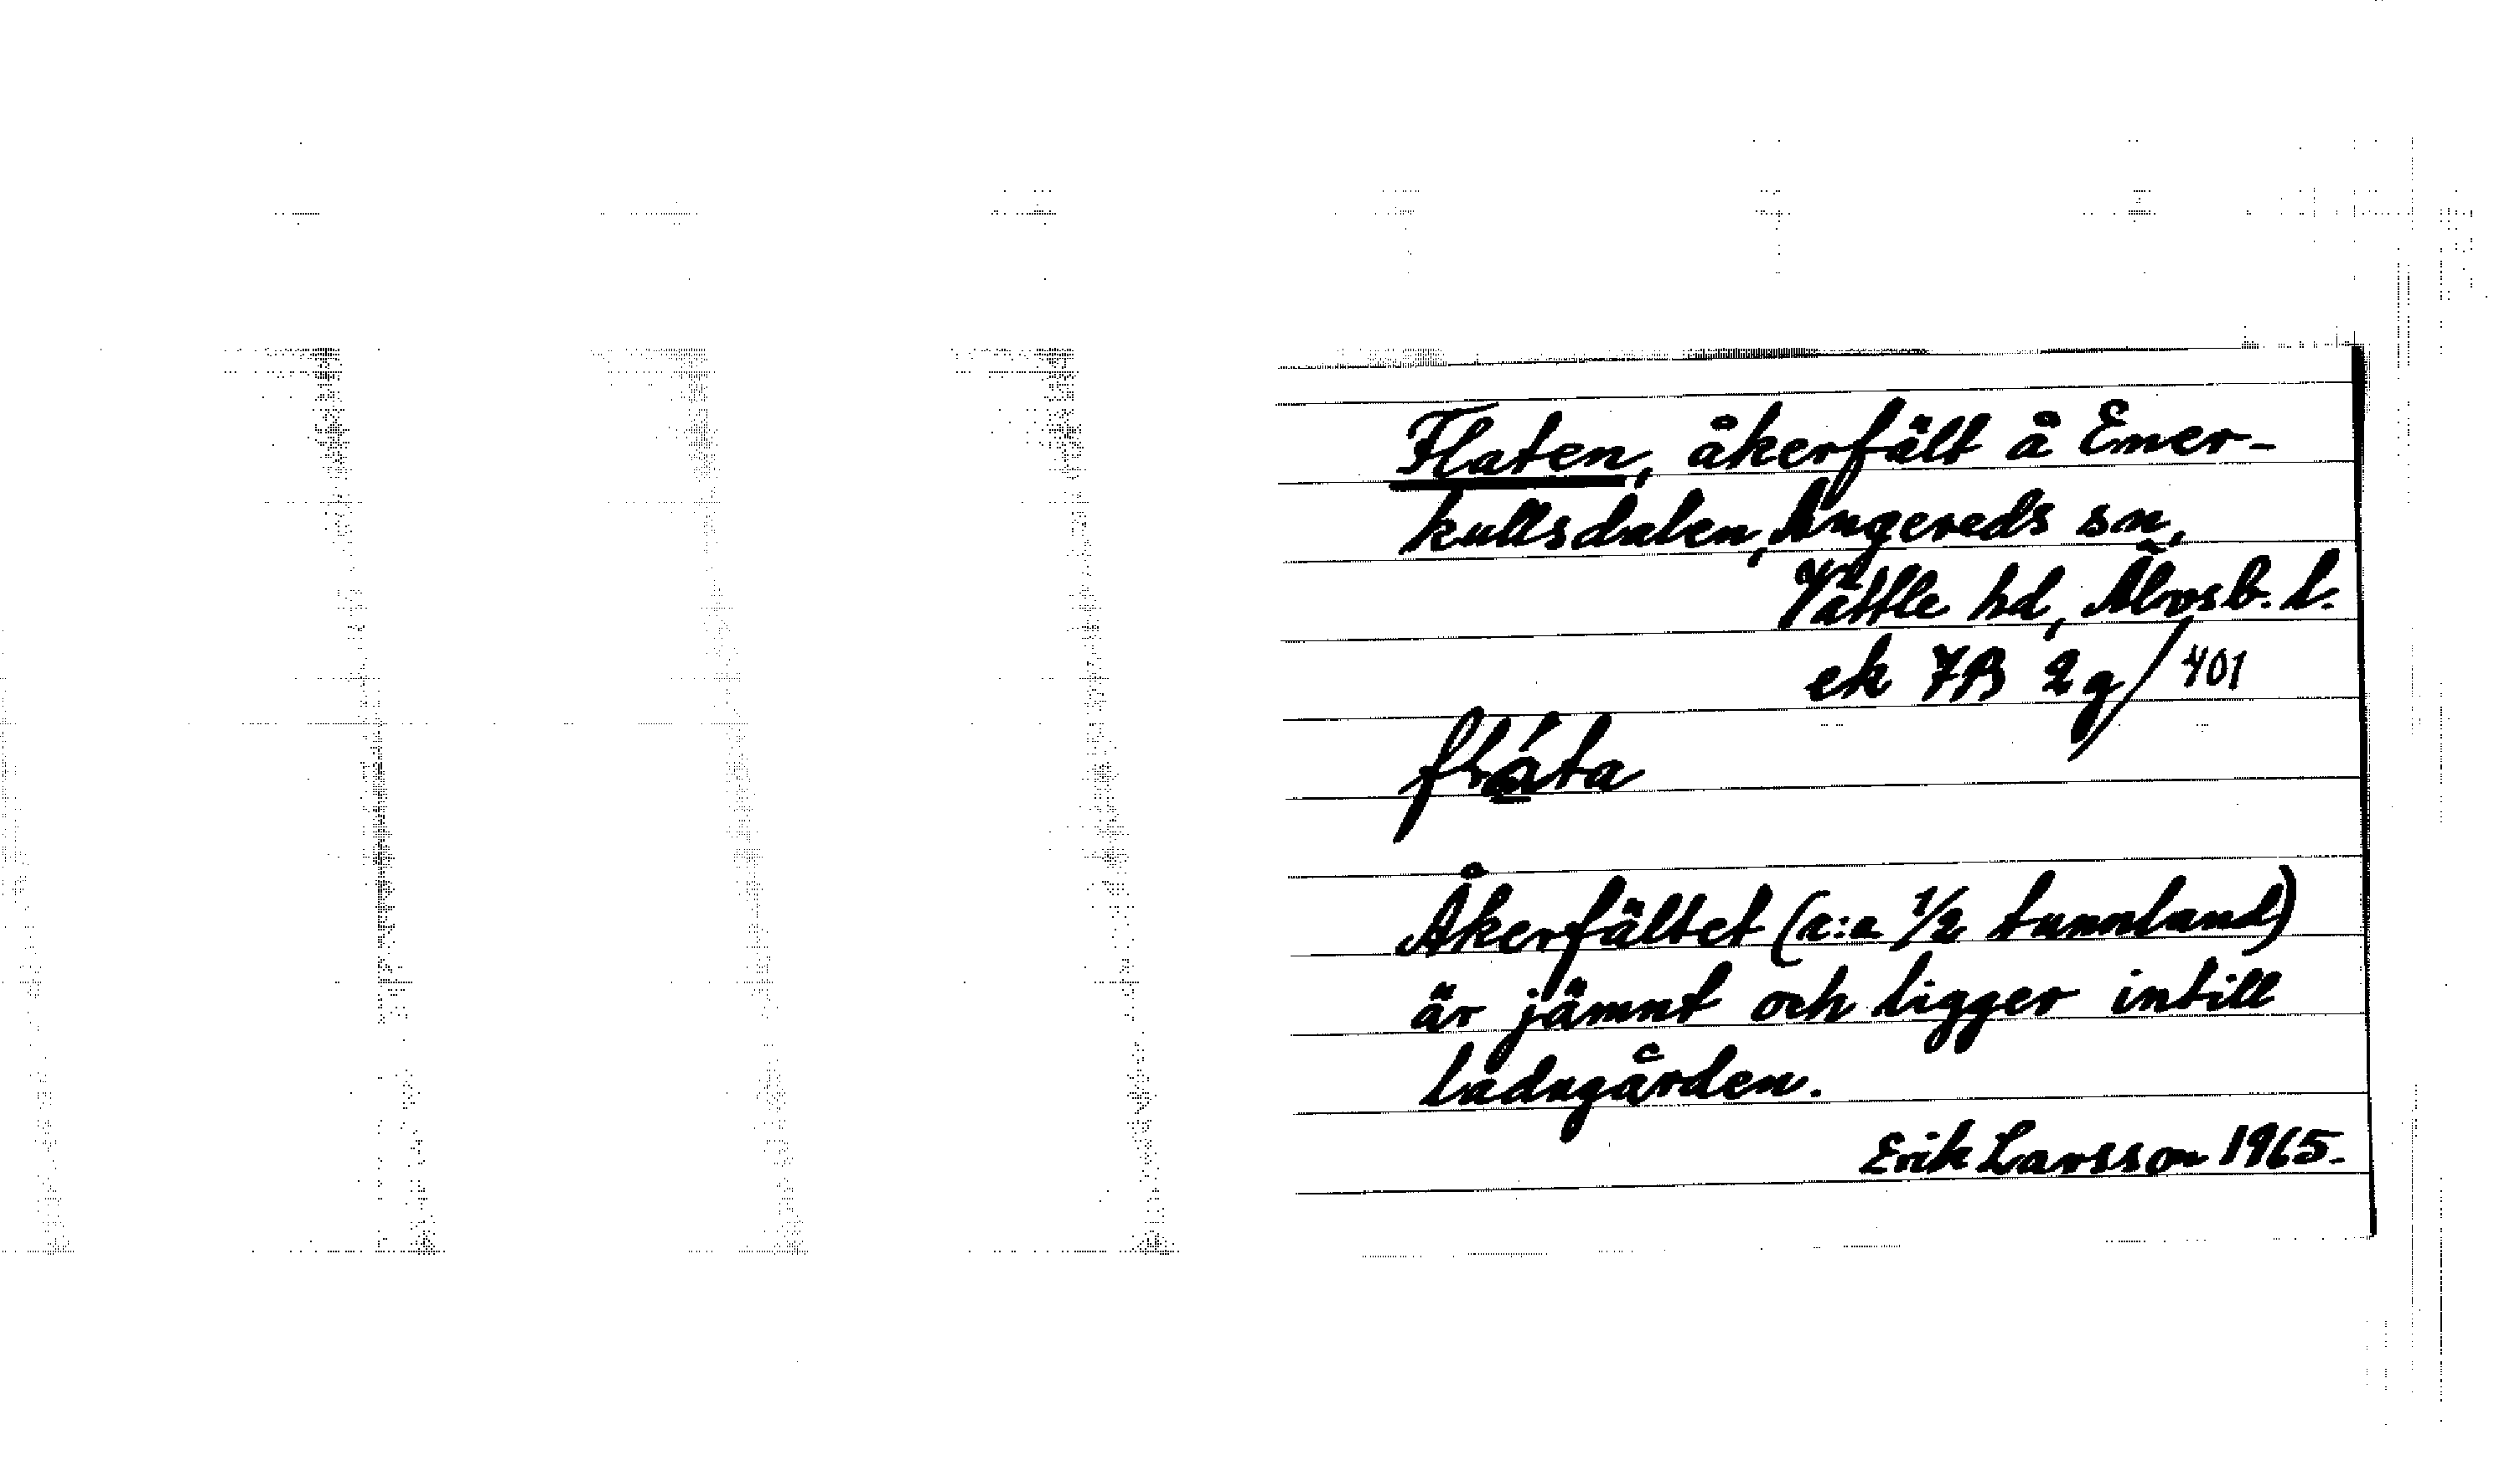 Flaten, åkerfält å Ener-
kullsdalen, Angereds sn,
Vättle hd, Älvsb. l.
ek 7B 2g/401
Åkerfältet (c:a 1/2 tunnland)
är jämnt och ligger intill
ladugården.
Erik Larsson 1965.